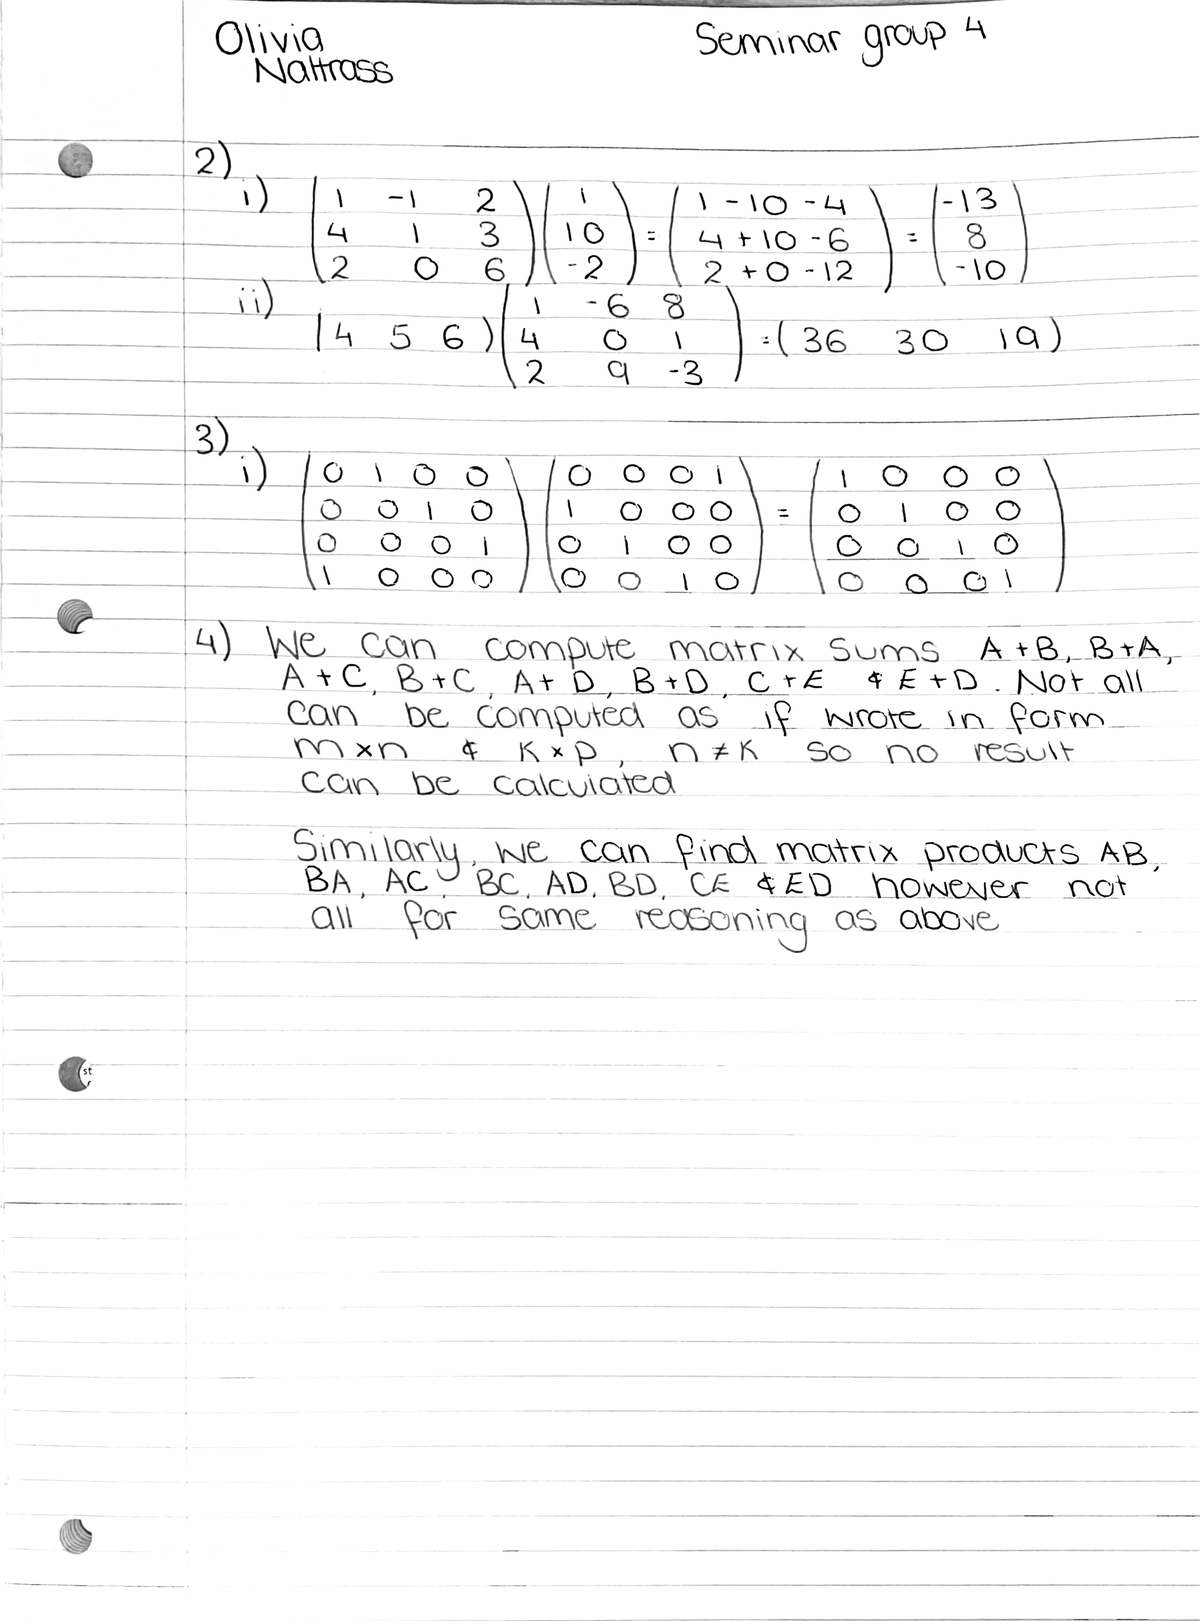 Olivia Seminar group 4
Nattrass
2)
i) ( 1 -1 2 ) ( 1 ) = ( 1 - 10 - 4 ) = ( -13 )
( 4 1 3 ) ( 10 ) = ( 4 + 10 - 6 ) = ( 8 )
( 2 0 6 ) ( -2 ) ( 2 + 0 - 12 ) ( -10 )
ii) ( 1 -6 8 )
( 4 5 6 ) ( 4 0 1 ) = ( 36 30 19 )
( 2 9 -3 )
3)
i) ( 0 1 0 0 ) ( 0 0 0 1 ) ( 1 0 0 0 )
( 0 0 1 0 ) ( 1 0 0 0 ) = ( 0 1 0 0 )
( 0 0 0 1 ) ( 0 1 0 0 ) ( 0 0 1 0 )
( 1 0 0 0 ) ( 0 0 1 0 ) ( 0 0 0 1 )
4) We can compute matrix sums A + B, B + A,
A + C, B + C, A + D, B + D, C + E & E + D. Not all
can be computed as if wrote in form
m × n & K × P, n ≠ K so no result
can be calculated
Similarly, we can find matrix products AB,
BA, AC, BC, AD, BD, CE & ED however not
all for same reasoning as above
st
r